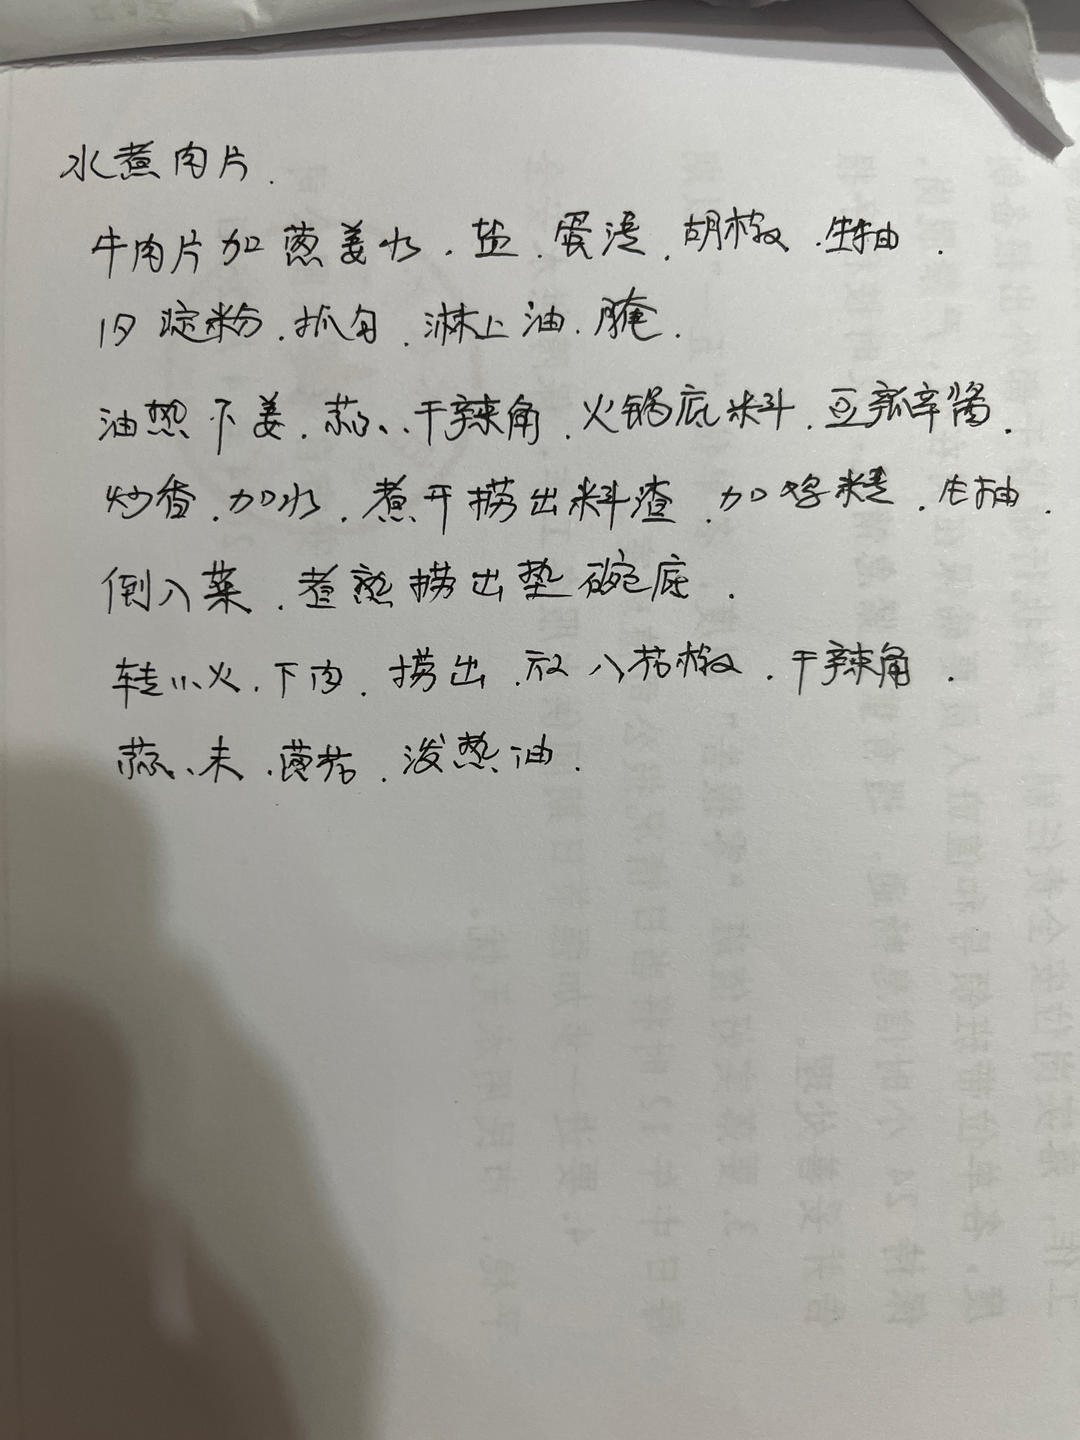 水煮肉片.
牛肉片加葱姜水.盐.蛋清.胡椒.生抽.
淀粉.抓匀.淋上油.腌.
油热下姜.蒜.干辣角.火锅底料.豆瓣酱.
炒香.加水.煮开捞出料渣.加 糖.生抽.
倒入菜.煮熟捞出垫碗底.
转小火.下肉.捞出.放入花椒.干辣角.
蒜末. 花.泼热油.